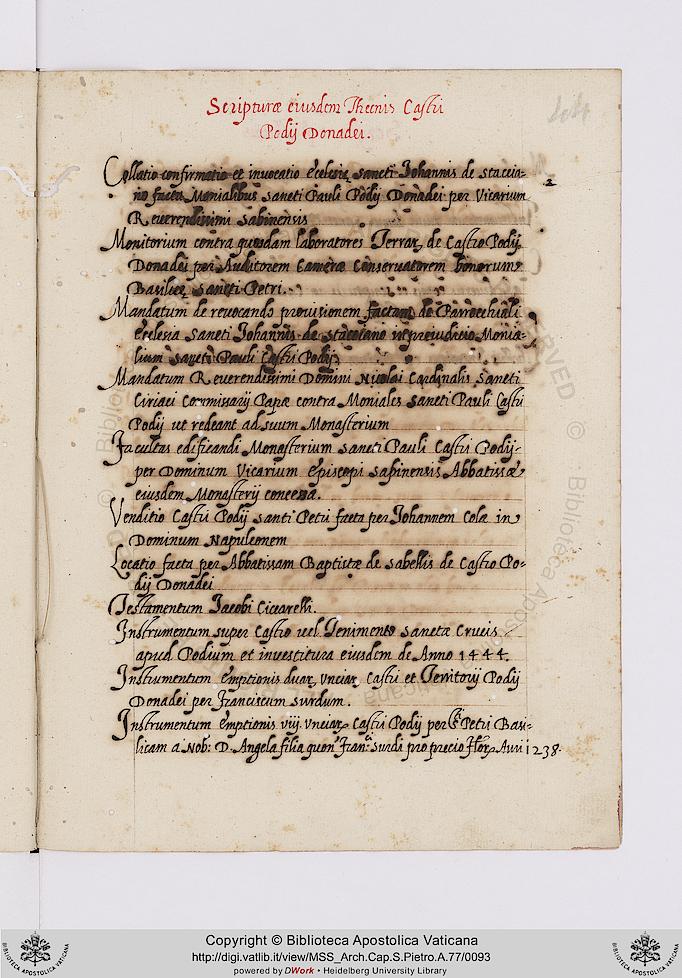 Scripturæ eiusdem Thecnis Castri
Podij Donadei.
Collatio confirmatio et inuocatio Ecclesiæ Sancti Johannis de staccia-
no facta Monialibus Sancti Pauli Podij Donadei per Vicarium
Reuerendissimi Sabinensis
Monitorium contra quosdam laboratores Terrar. de Castro Podij
Donadei per Auditorem Cameræ Conseruatorem bonorum
Basilicæ Sancti Petri.
Mandatum de reuocando prouisionem factam de Parrocchiali
Ecclesia Sancti Johannis de stacciano in preiudicio Monia-
lium Sancti Pauli Castri Podij
Mandatum Reuerendissimi Domini Nicolai Cardinalis Sancti
Ciriaci Commissarij Papæ contra Moniales Sancti Pauli Castri
Podij ut redeant ad suum Monasterium
Facultas edificandi Monasterium Sancti Pauli Castri Podij
per Dominum Vicarium Episcopi Sabinensis Abbatissæ
eiusdem Monasterij concessa.
Venditio Castri Podij Santi Petri facta per Johannem Colæ in
Dominum Napuleonem
Locatio facta per Abbatissam Baptistæ de Sabellis de Castro Po-
dij Donadei
Testamentum Jacobi Ciccarelli.
Instrumentum super Castro uel Tenimento Sanctæ Crucis
apud Podium et inuestitura eiusdem de Anno 1444.
Instrumentum Emptionis duar. Vnciar. Castri et Territorij Podij
Donadei per Franciscum Surdum.
Instrumentum Emptionis viij Vnciar. Castri Podij per S. Petri Basi-
licam a Nob: D. Angela filia quon. Fran.ci Surdi pro precio Flor. Auri 1238.
Copyright © Biblioteca Apostolica Vaticana
http://digi.vatlib.it/view/MSS_Arch.Cap.S.Pietro.A.77/0093
powered by DWork • Heidelberg University Library